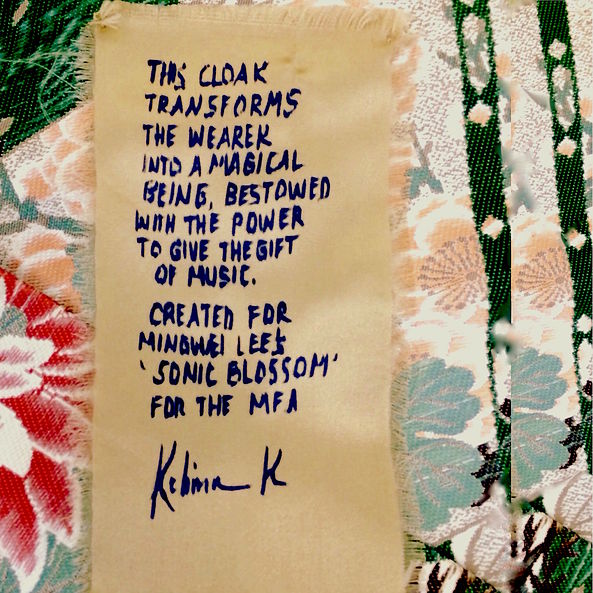 THIS CLOAK
TRANSFORMS
THE WEARER
INTO A MAGICAL
BEING, BESTOWED
WITH THE POWER
TO GIVE THE GIFT
OF MUSIC.
CREATED FOR
MINGWEI LEE'S
'SONIC BLOSSOM'
FOR THE MFA
K